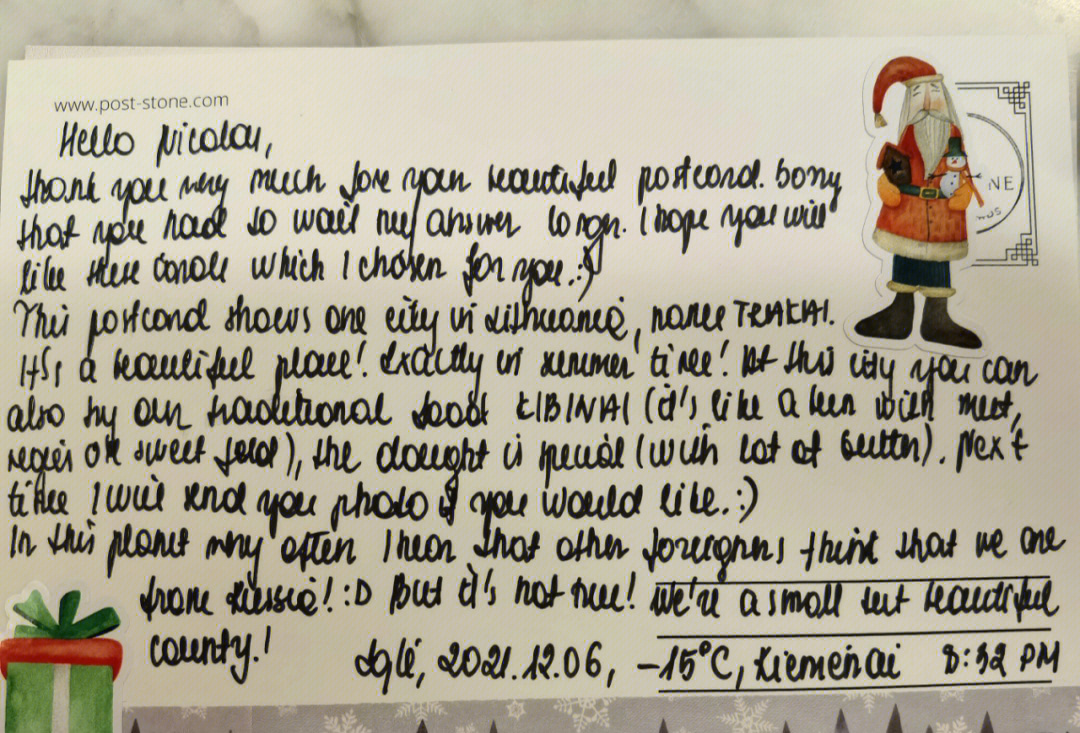 www.post-stone.com
Hello Nicolai,
thank you very much for your beautiful postcard. Sorry
that you had to wait my answer longer. I hope you will
like these cards which I chosen for you. :)
This postcard shows one city in Lithuania, name TRAKAI.
It's a beautiful place! Exactly in summer time! At this city you can
also try our traditional food KIBINAI (it's like a with meet,
or sweet), the dought is special (with lot of butter). Next
time I will send you photo if you would like. :)
In this planet very often I hear that other foreigners think that we are
from Russia! :D But it's not true! We're a small but beautiful
county!
NE
Eglė, 2021.12.06, -15°C, 8:32 PM